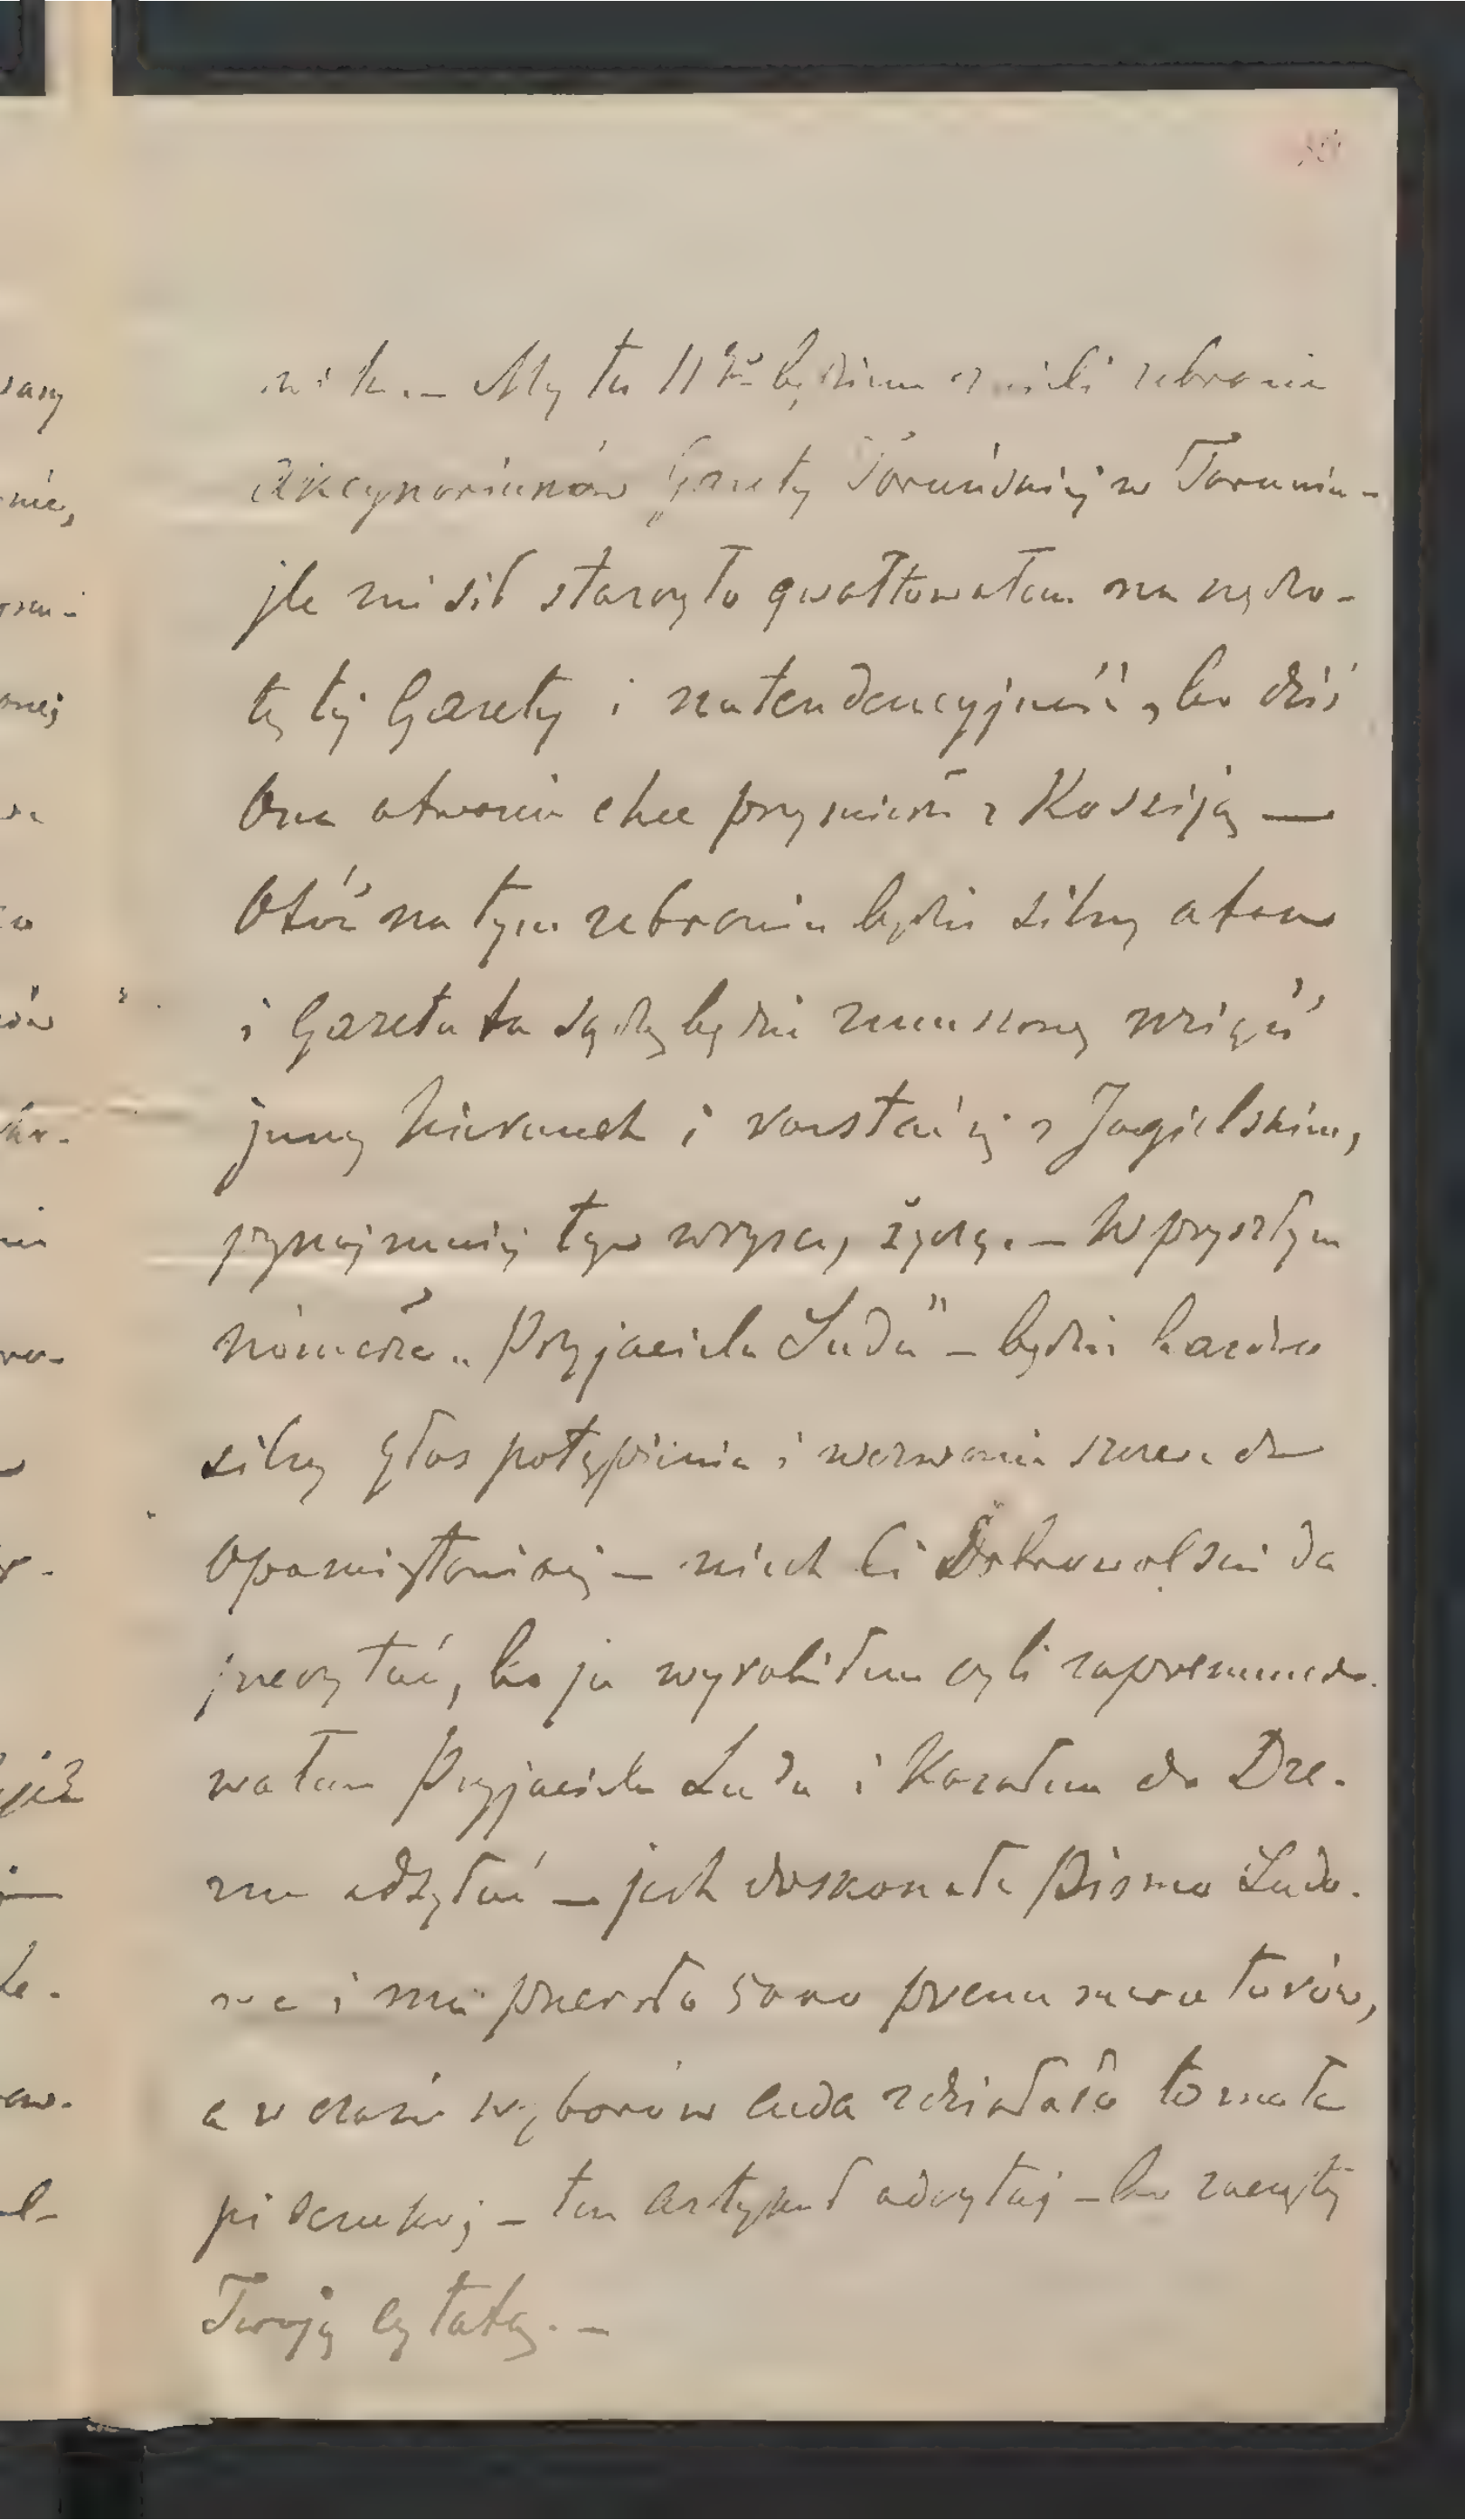 My tu 11go będziemy mieli zebranie
Akcyonariuszów „Gazety Toruńskiéj w Toruniu –
ile mi sił starczyło gwałtowałem na nędzo-
tę téj Gazety i na tendencyjność, bo dziś
Ona otwarcie chce przymierza z Rossiją —
Otóż na tym zebraniu będzie silny atak
i Gazeta ta sądzę będzie zmuszoną wziąść
inny kierunek i rozstać się z Jagielskim,
przynajmniéj tego wszyscy żądzą. – W przyszłym
nómerze „Przyjaciela Ludu" – będzie bardzo
silny głos potępienia i wezwania do
Opamiętania się – niech Ci Dobrowolski da
przeczytać, bo ja wyrobiłem czyli zaprenumero-
wałem Przyjaciela Ludu i Kazałem do Dre-
zna odsyłać – jest doskonałe Pismo Ludo-
we i ma przeszło 5000 prenumeratorów,
a w czasie wyborów cuda zdziałało to małe
pisemko; – ten artykuł odczytaj – bo zaczęty
Twoją cytatą. –